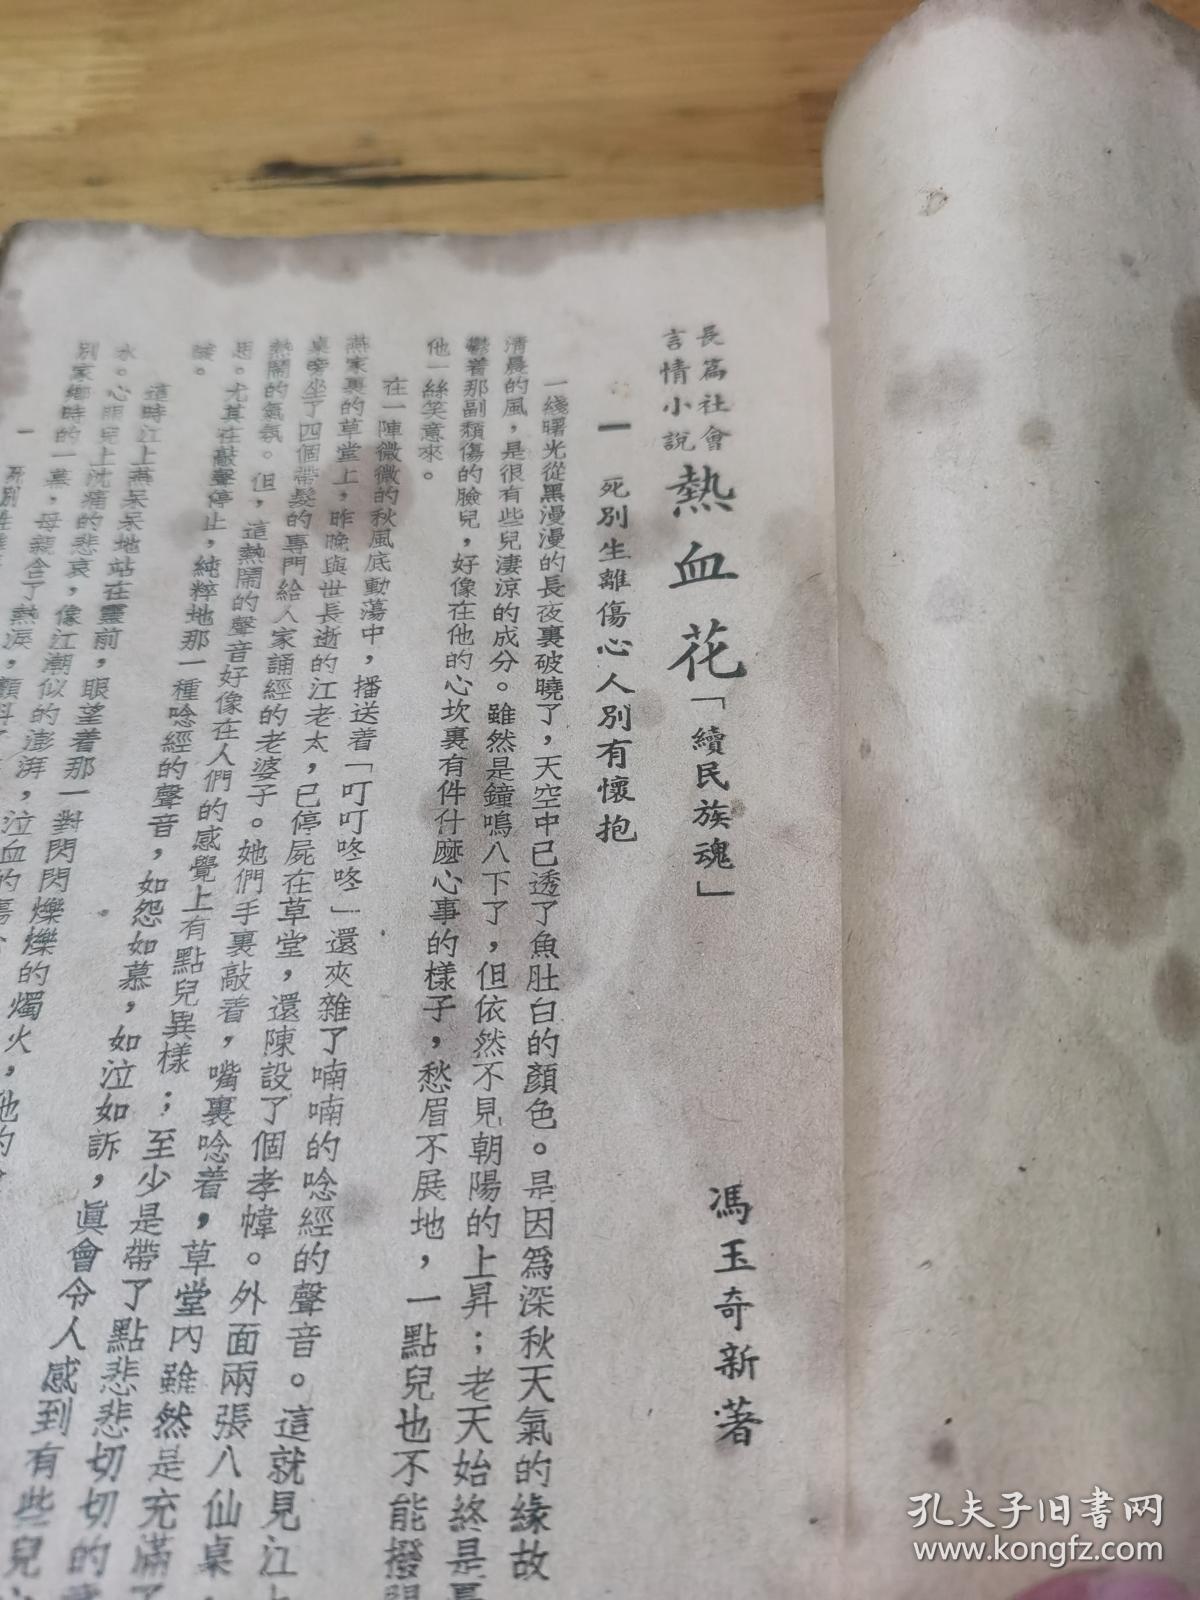 長篇社會
言情小說
熱血花「續民族魂」
馮玉奇新著
一 死別生離傷心人別有懷抱
一綫曙光從黑漫漫的長夜裏破曉了，天空中已透了魚肚白的顏色。是因爲深秋天氣的緣故
清晨的風，是很有些兒淒涼的成分。雖然是鐘鳴八下了，但依然不見朝陽的上昇；老天始終是
鬱着那副頹傷的臉兒，好像在他的心坎裏有件什麼心事的樣子，愁眉不展地，一點兒也不能撥開
他一絲笑意來。
在一陣微微的秋風底動蕩中，播送着「叮叮咚咚」還夾雜了喃喃的唸經的聲音。這就見江上
燕家裏的草堂上，昨晚與世長逝的江老太，已停屍在草堂，還陳設了個孝幃。外面兩張八仙桌
桌旁坐了四個帶髮的專門給人家誦經的老婆子。她們手裏敲着，嘴裏唸着，草堂內雖然是充滿了
熱鬧的氣氛。但，這熱鬧的聲音好像在人們的感覺上有點兒異樣；至少是帶了點悲悲切切的
思。尤其在敲聲停止，純粹地那一種唸經的聲音，如怨如慕，如泣如訴，眞會令人感到有些兒
酸。
這時江上燕呆呆地站在靈前，眼望着那一對閃閃爍爍的燭火，他的
水。心眼兒上沈痛的悲哀，像江潮似的澎湃，泣血的
別家鄉時的一幕，母親含了熱淚，
一 死別生
孔夫子旧书网
www.kongfz.com